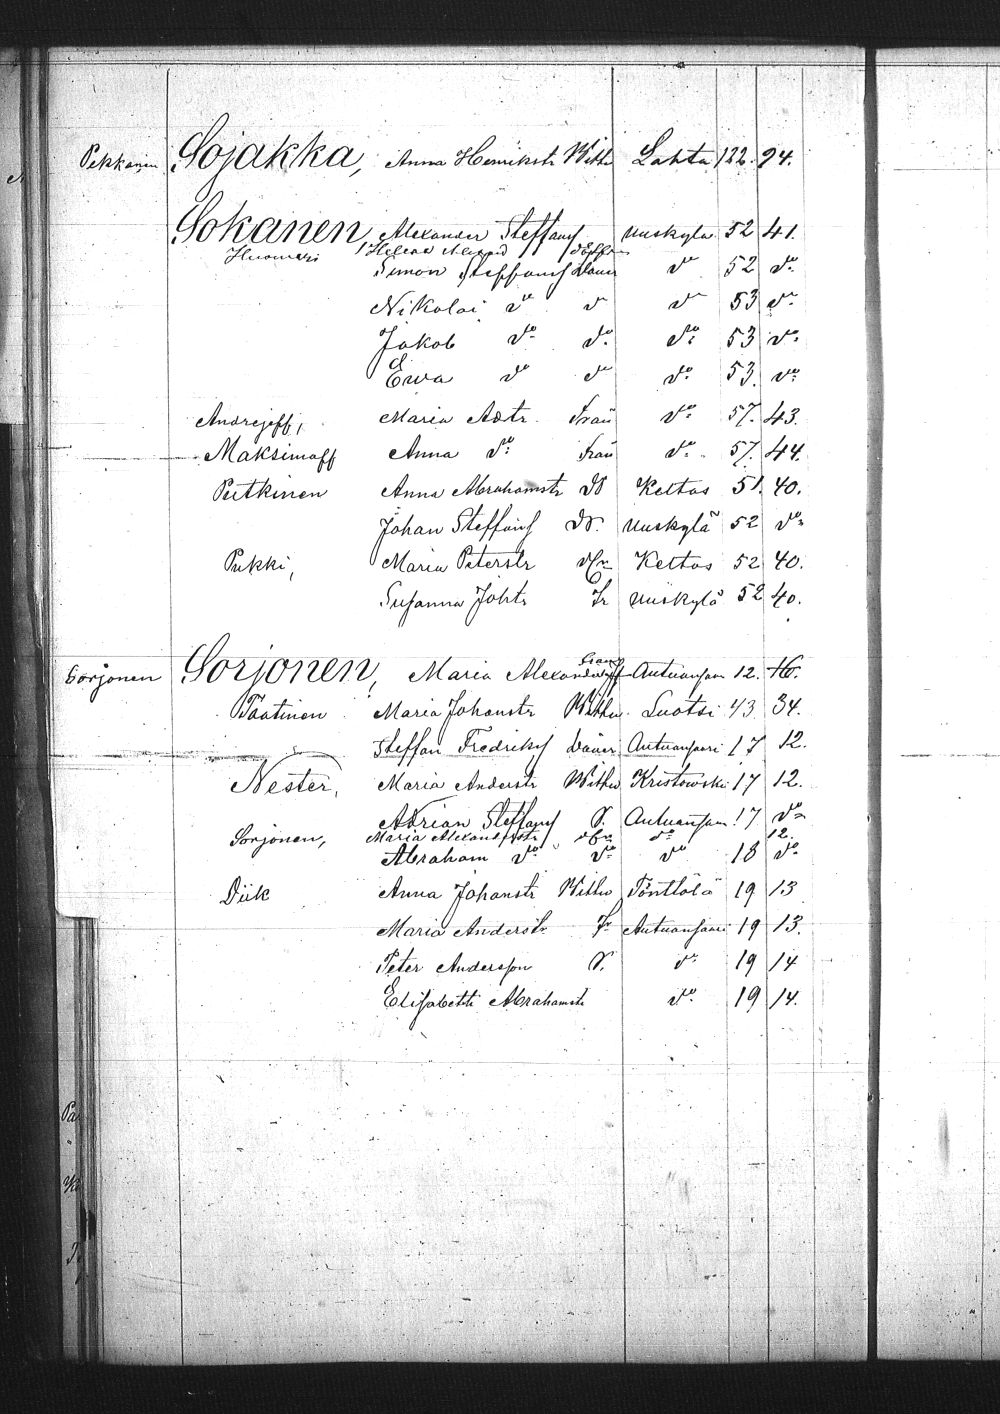 Pekkanen Sojakka, Anna Henrikstr Withe Lahta 122. 94.
Sokanen, Alexander Steffansf Uuskyla 52 41.
Huomari Helena Alexand
Simon Steffansf Slavér do 52 do.
Nikolai do do do 53 do.
Jakob do. do. do. 53 do.
Ewa do do do. 53. do.
Andrejeff, Maria Adtr. Frau do. 57. 43.
Maksimoff Anna do. Frau do. 57. 44.
Putkinen Anna Abrahamstr Keltos 51. 40.
Johan Steffansf Uuskylä 52 do.
Pukki, Maria Peterstr Keltos 52 40.
Susanna Johtr Fr Uuskylä 52 40.
Sorjonen Sorjonen, Maria Alexanderdotter Autuansaa 12. 16.
Taatinen Maria Johanstr Withe Luotsi 43. 34.
Steffan Fredriksf Autuansaari 17 12.
Nester, Maria Anderstr Withe Kristowski 17 12.
Adrian Steffansf S. Autuansaa 17 do
Sorjonen, Maria Alexanderstr do 12.
Abraham do do do 18 do.
Diik Anna Johanstr Withe Tönttölä 19 13
Maria Anderstr. Fr Autuansaari 19 13.
Peter Andersson S. do. 19 14
Elisabeth Abrahamstr do. 19 14.